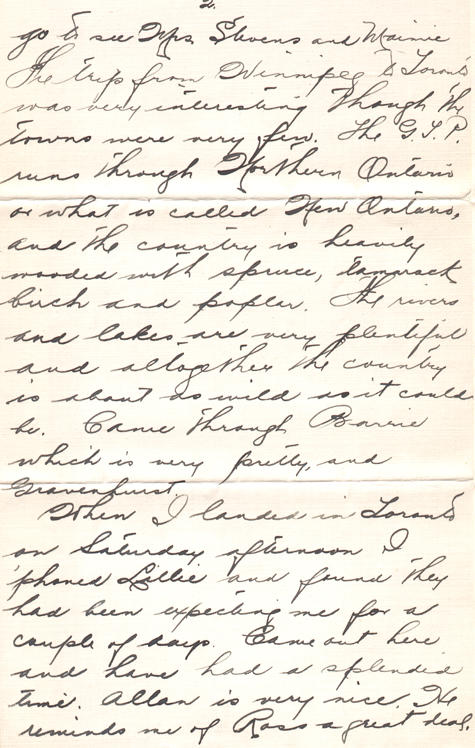 2.
go to see Mrs. Stevens and Mainie
The trip from Winnipeg to Toronto
was very interesting though the
towns were very few. The G.T.P.
runs through Northern Ontario
or what is called New Ontario,
and the country is heavily
wooded with spruce, tamarack
birch and poplar. The rivers
and lakes are very plentiful
and altogether the country
is about as wild as it could
be. Came through Barrie
which is very pretty, and
Gravenhurst.
When I landed in Toronto
on Saturday afternoon I
'phoned Lillie and found they
had been expecting me for a
couple of days. Came out here
and have had a splendid
time. Allan is very nice. He
reminds me of Ross a great deal.